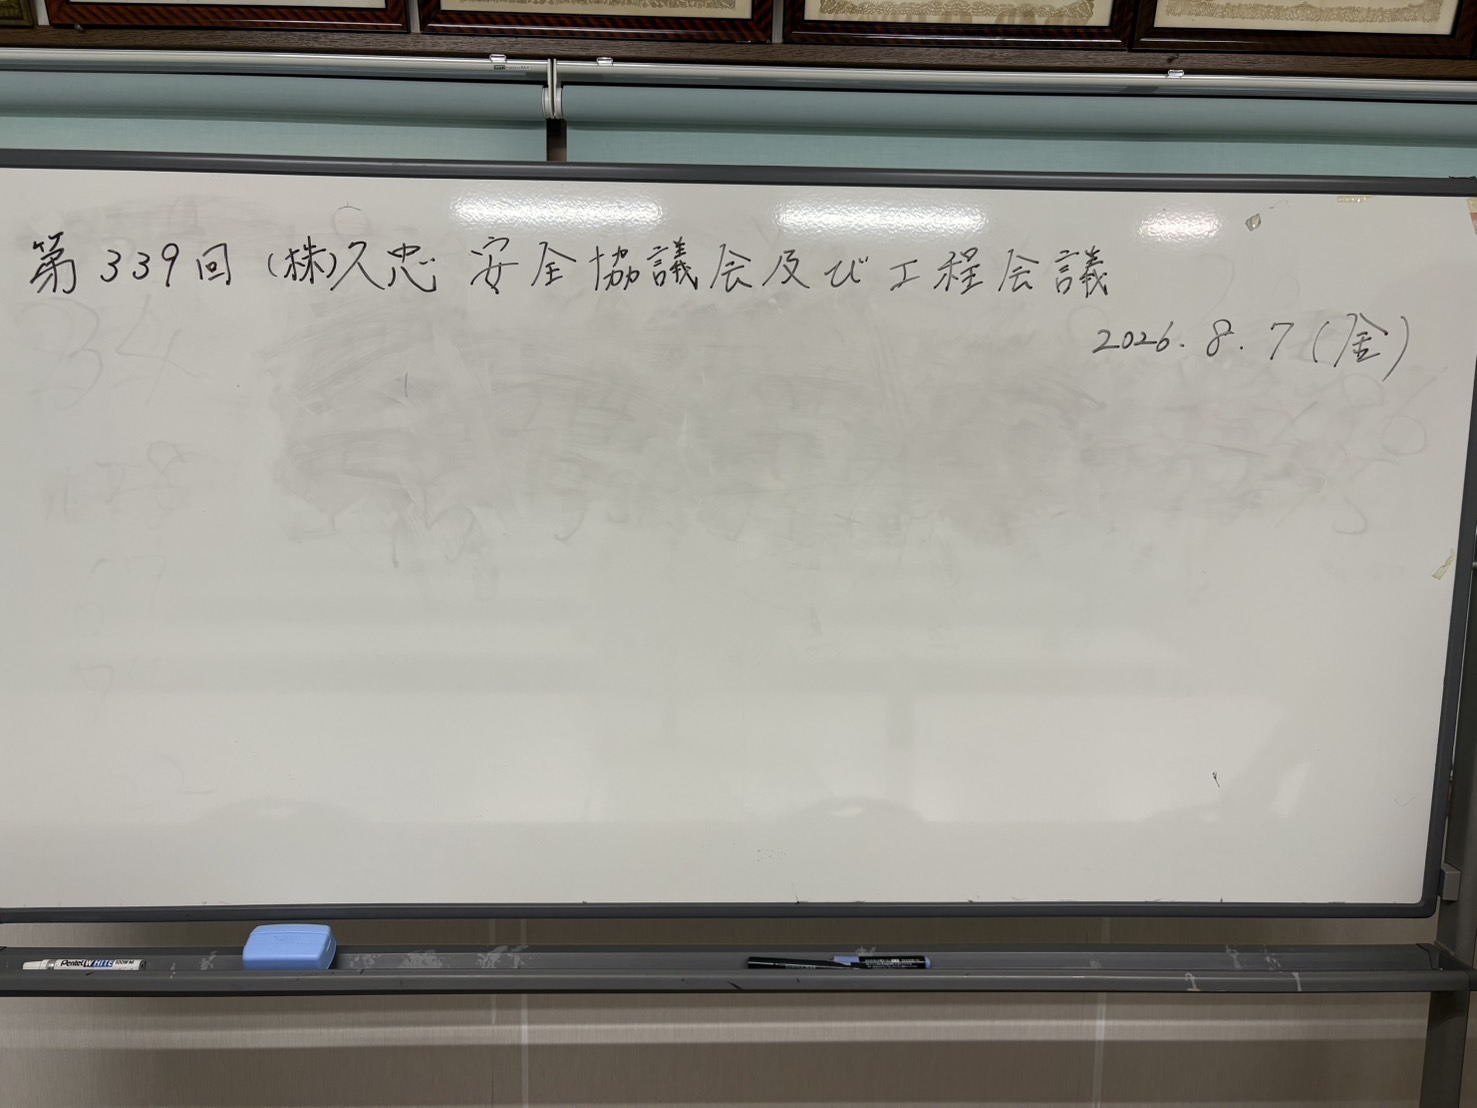 第339回 (株)久忠 安全協議会及び工程会議
2026.8.7(金)
Pentel WHITE 100W M